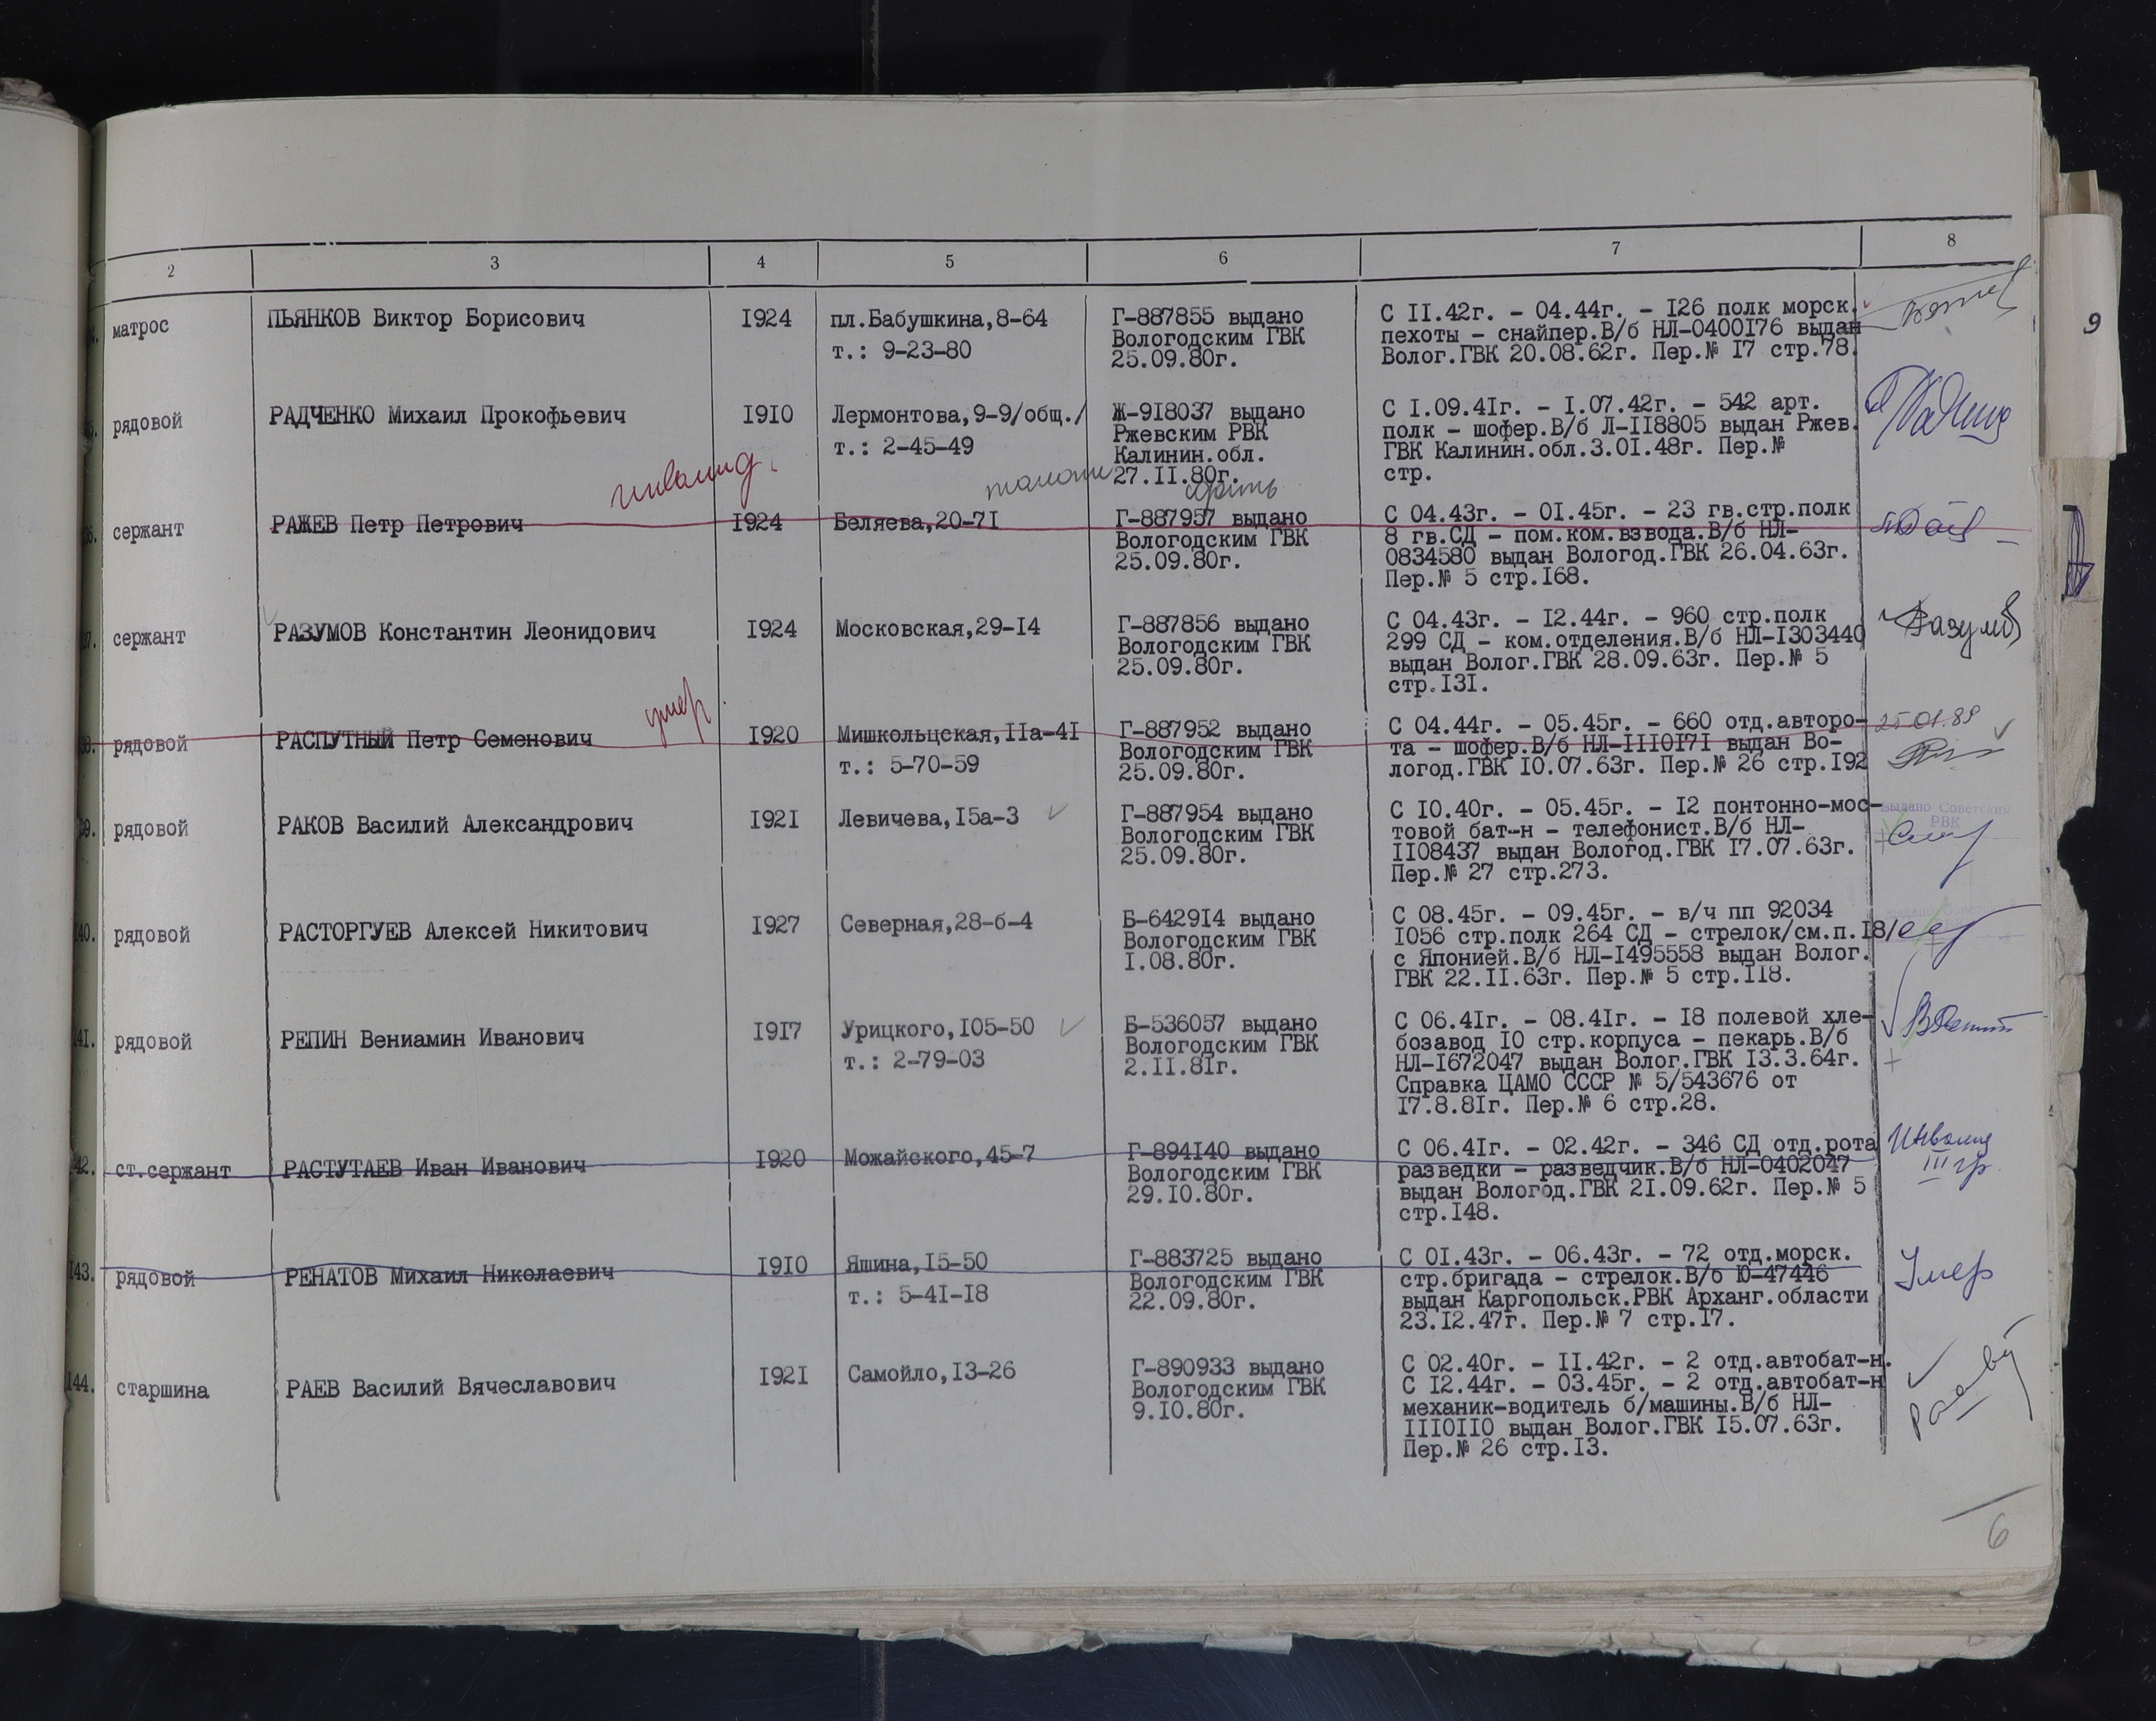 2 3 4 5 6 7 8
матрос ПЬЯНКОВ Виктор Борисович 1924 пл.Бабушкина,8-64 Г-887855 выдано С 11.42г. - 04.44г. - 126 полк морск.
т.: 9-23-80 Вологодским ГВК пехоты - снайпер.В/б НЛ-0400176 выдан
25.09.80г. Волог.ГВК 20.08.62г. Пер.№ 17 стр.78.
9
рядовой РАДЧЕНКО Михаил Прокофьевич 1910 Лермонтова,9-9/общ./ Ж-918037 выдано С 1.09.41г. - 1.07.42г. - 542 арт.
т.: 2-45-49 Ржевским РВК полк - шофер.В/б Л-118805 выдан Ржев.
Калинин.обл. ГВК Калинин.обл.3.01.48г. Пер.№
27.11.80г. стр.
инвалид.
сержант РАЖЕВ Петр Петрович 1924 Беляева,20-71 Г-887957 выдано С 04.43г. - 01.45г. - 23 гв.стр.полк
Вологодским ГВК 8 гв.СД - пом.ком.взвода.В/б НЛ-
25.09.80г. 0834580 выдан Вологод.ГВК 26.04.63г.
Пер.№ 5 стр.168.
сержант РАЗУМОВ Константин Леонидович 1924 Московская,29-14 Г-887856 выдано С 04.43г. - 12.44г. - 960 стр.полк Разумов
Вологодским ГВК 299 СД - ком.отделения.В/б НЛ-1303440
25.09.80г. выдан Волог.ГВК 28.09.63г. Пер.№ 5
стр.131.
умер
рядовой РАСПУТНЫЙ Петр Семенович 1920 Мишкольцская,11а-41 Г-887952 выдано С 04.44г. - 05.45г. - 660 отд.авторо- 25.01.89
т.: 5-70-59 Вологодским ГВК та - шофер.В/б НЛ-1110171 выдан Во-
25.09.80г. логод.ГВК 10.07.63г. Пер.№ 26 стр.192
рядовой РАКОВ Василий Александрович 1921 Левичева,15а-3 Г-887954 выдано С 10.40г. - 05.45г. - 12 понтонно-мос- выдано Советским
Вологодским ГВК товой бат-н - телефонист.В/б НЛ- РВК
25.09.80г. 1108437 выдан Вологод.ГВК 17.07.63г.
Пер.№ 27 стр.273.
140. рядовой РАСТОРГУЕВ Алексей Никитович 1927 Северная,28-б-4 Б-642914 выдано С 08.45г. - 09.45г. - в/ч пп 92034
Вологодским ГВК 1056 стр.полк 264 СД - стрелок/см.п.18/
1.08.80г. с Японией.В/б НЛ-1495558 выдан Волог.
ГВК 22.11.63г. Пер.№ 5 стр.118.
141. рядовой РЕПИН Вениамин Иванович 1917 Урицкого,105-50 Б-536057 выдано С 06.41г. - 08.41г. - 18 полевой хле-
т.: 2-79-03 Вологодским ГВК бозавод 10 стр.корпуса - пекарь.В/б
2.11.81г. НЛ-1672047 выдан Волог.ГВК 13.3.64г.
Справка ЦАМО СССР № 5/543676 от
17.8.81г. Пер.№ 6 стр.28.
42. ст.сержант РАСТУТАЕВ Иван Иванович 1920 Можайского,45-7 Г-894140 выдано С 06.41г. - 02.42г. - 346 СД отд.рота Инвалид
Вологодским ГВК разведки - разведчик.В/б НЛ-0402047 III гр.
29.10.80г. выдан Вологод.ГВК 21.09.62г. Пер.№ 5
стр.148.
143. рядовой РЕНАТОВ Михаил Николаевич 1910 Яшина,15-50 Г-883725 выдано С 01.43г. - 06.43г. - 72 отд.морск. Умер
т.: 5-41-18 Вологодским ГВК стр.бригада - стрелок.В/б Ю-47446
22.09.80г. выдан Каргопольск.РВК Арханг.области
23.12.47г. Пер.№ 7 стр.17.
144. старшина РАЕВ Василий Вячеславович 1921 Самойло,13-26 Г-890933 выдано С 02.40г. - 11.42г. - 2 отд.автобат-н.
Вологодским ГВК С 12.44г. - 03.45г. - 2 отд.автобат-н
9.10.80г. механик-водитель б/машины.В/б НЛ-
1110110 выдан Волог.ГВК 15.07.63г.
Пер.№ 26 стр.13.
6